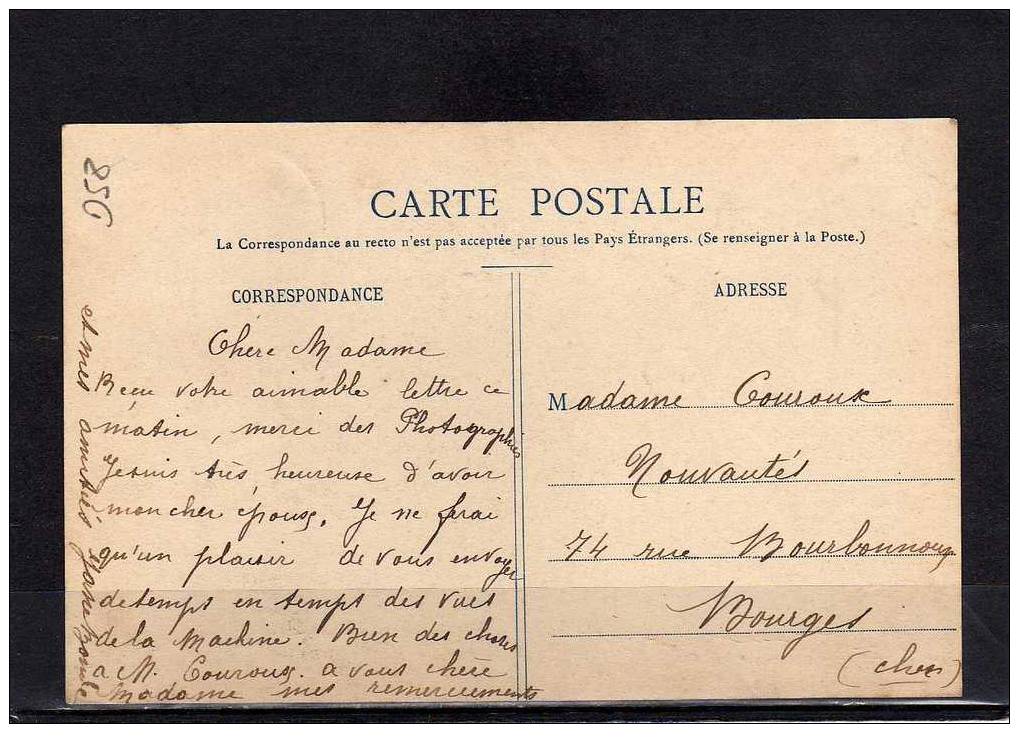 850
CARTE POSTALE
La Correspondance au recto n'est pas acceptée par tous les Pays Étrangers. (Se renseigner à la Poste.)
CORRESPONDANCE
Chère Madame
Reçu votre aimable lettre ce
matin, merci des Photographies
Je suis très heureuse d'avoir
mon cher époux. Je ne ferai
qu'un plaisir de vous envoyer
de temps en temps des vues
de la Machine. Bien des choses
a M. Couroux. a vous chère
Madame mes remerciements
et mes amitiés Jane
ADRESSE
Madame Couroux
Nouvautés
74 rue Bourbonnoux
Bourges
(Cher)